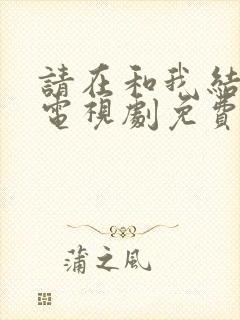 請在和我結
電視劇免費
蒲之風